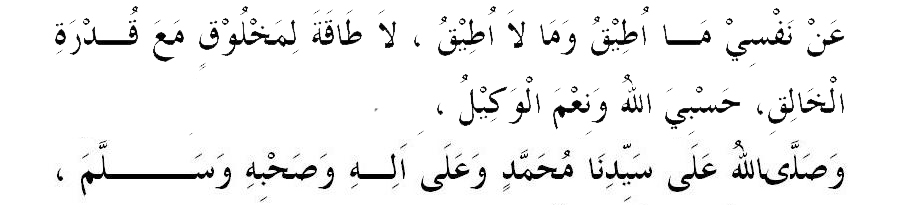 عَنْ نَفْسِيْ مَـــا اُطِيْقُ وَمَا لاَ اُطِيْقُ ، لاَ طَاقَةَ لِمَخْلُوْقٍ مَعَ قُـــدْرَةِ
الْخَالِقِ، حَسْبِيَ اللهُ وَنِعْمَ الْوَكِيْلُ ،
وَصَلَّى اللهُ عَلَى سَيِّدِنَا مُحَمَّدٍ وَعَلَى اَلِـــهِ وَصَحْبِهِ وَسَــــــلَّمَ ،